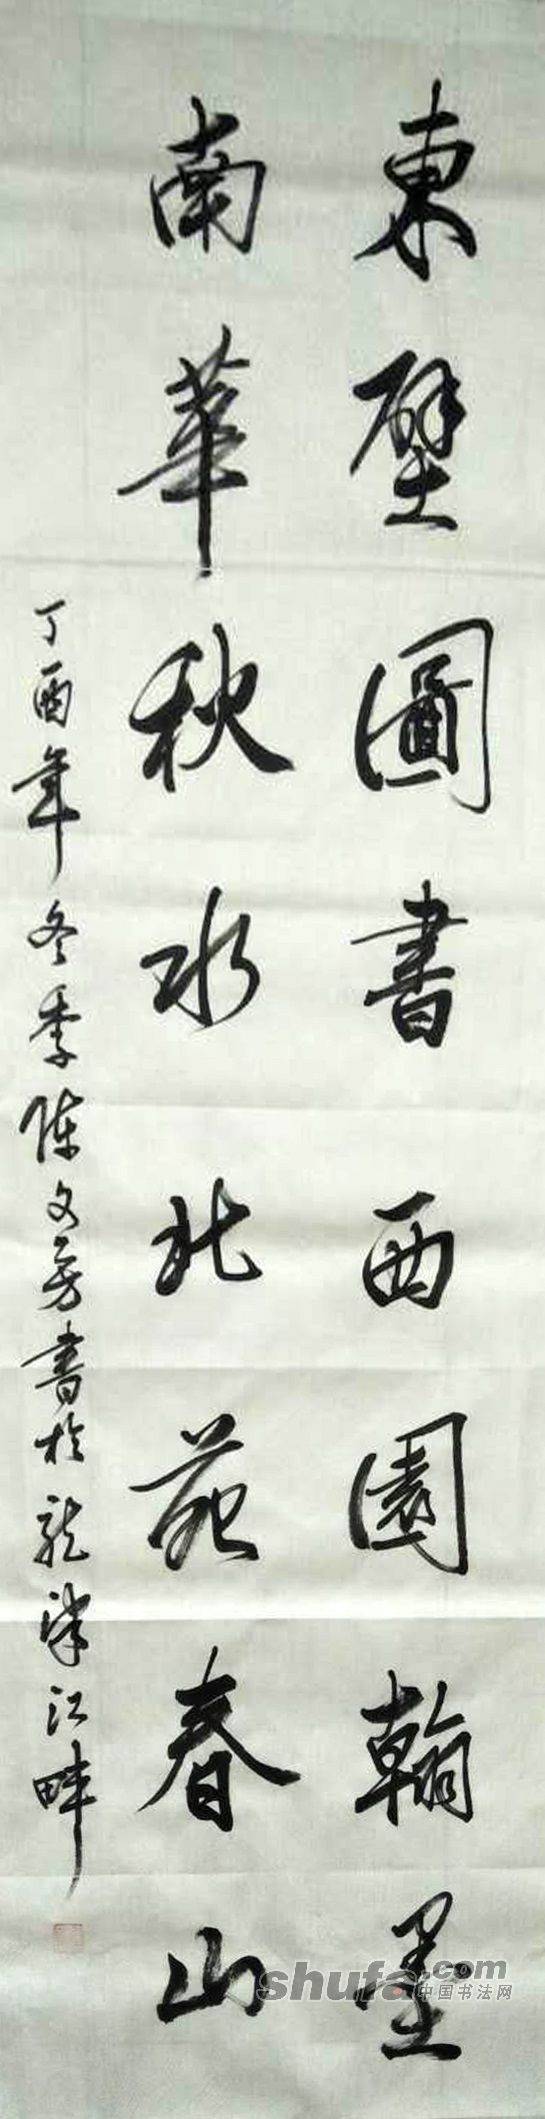 東壁圖書西園翰墨
南華秋水北苑春山
丁酉年冬季陈文芳書於龍津江畔
shufa.com
中国书法网